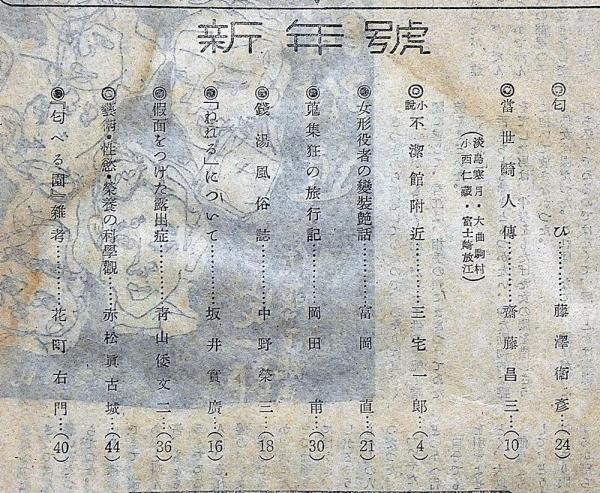 新年號
◎匂ひ……藤澤衞彥…(24)
◎當世畸人傳……齋藤昌三…(10)
(淡島寒月・大曲駒村
小西仁藏・富士崎放江)
◎小說 不潔館附近……三宅一郎…(4)
◎女形役者の變裝艶話……富岡直…(21)
◎蒐集狂の旅行記……岡田甫…(30)
◎錢湯風俗誌……中野榮三…(18)
◎「ねれる」について……坂井實廣…(16)
◎假面をつけた露出症……靑山倭文二…(36)
◎藝術・性慾・榮養の科學觀……赤松眞古城…(44)
◎『匂へる園』雜考……花町右門…(40)